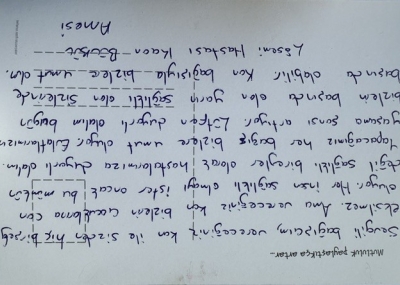 Mutluluk paylaştıkça artar...
Sevgili bağışçım, vereceğiniz kan ile sizden hiç birşey
eksilmez. Ama vereceğiniz kan bizlerin vücutlarına can
oluyor. Her insan sağlıklı olmayı ister ancak bu mümkün
değil. Sağlıklı bireyler olarak hastalarımıza duyarlı olalım.
Yapacağınız her bağış bizlere umut oluyor. Evlatlarımızın
yaşama şansı artıyor. Lütfen duyarlı olalım bugün
bizlerin başında olan yarın sağlıklı olan sizlerinde
başında olabilir. Kan bağışıyla bizlere umut olun.
Lösemi Hastası Kaan
Annesi